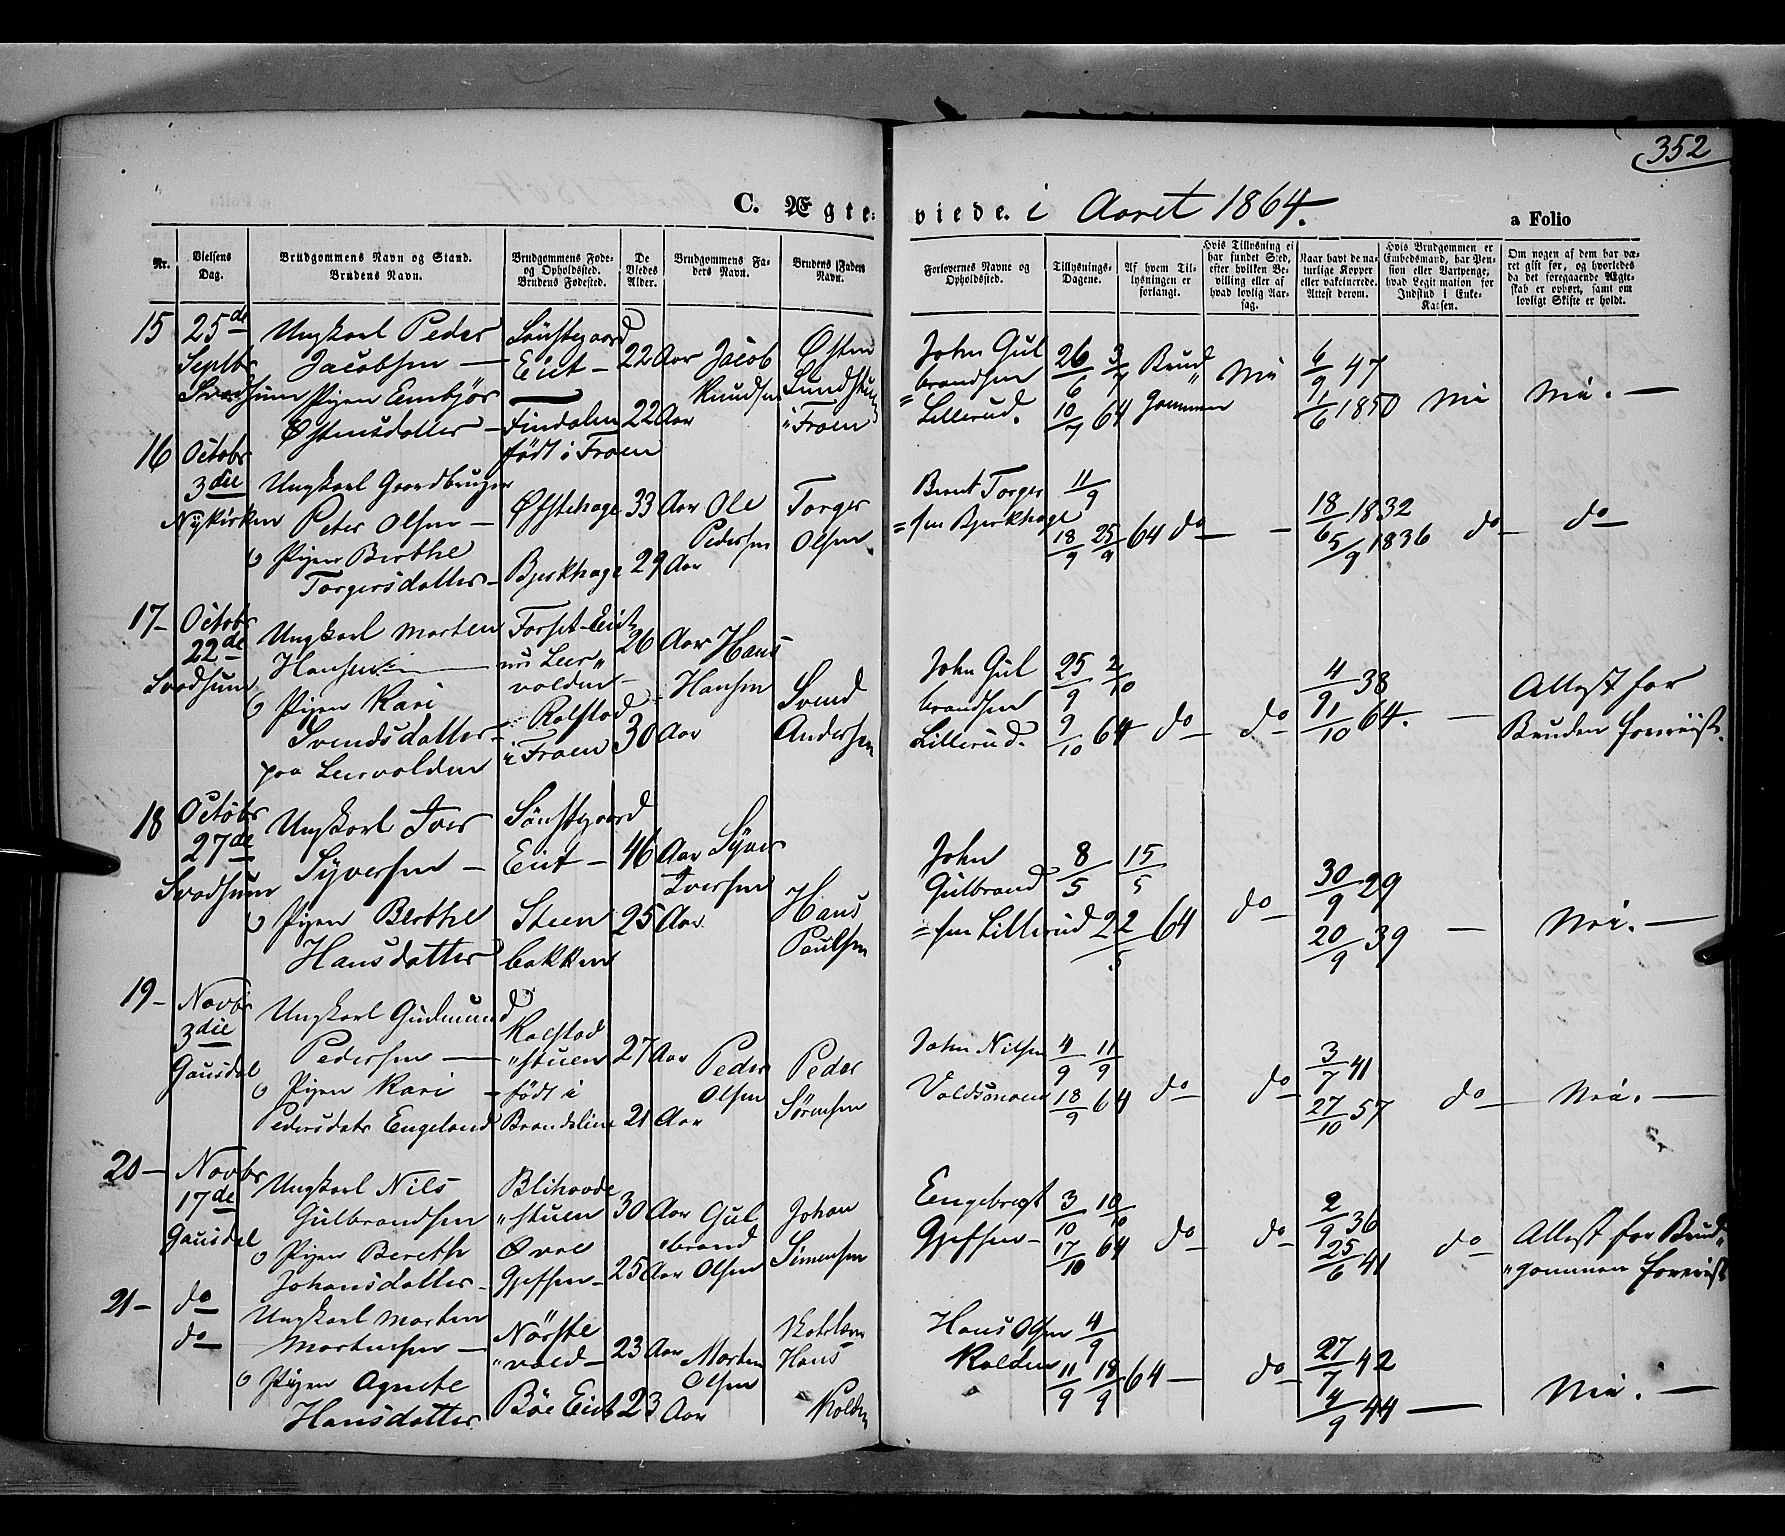 352
C. Ægte- viede. i Aaret 1864.
a Folio
Nr.
Vielsens Dag.
Brudgommens Navn og Stand. Brudens Navn.
Brudgommens Føde- og Opholdssted. Brudens Fødested.
De Viedes Alder.
Brudgommens Faders Navn.
Brudens Faders Navn.
Forlovernes Navne og Opholdssted.
Tillysnings-Dagene.
Af hvem Tillysningen er forlangt.
Hvis Tillysning ei har fundet Sted, efter hvilken Bevilling eller af hvad lovlig Aarsag.
Naar havt de naturlige Kopper eller vakcinerede. Attest derom.
Hvis Brudgommen er Embedsmand, har Pension eller Vartpenge, hvad Legitimation for Indskud i Enke-Kassen.
Om nogen af dem har været gift før, og hvorledes da det foregaaende Ægteskab er ophørt, samt om lovligt Skifte er holdt.
15 25de Septbr Svadsum
Ungkarl Peder
Jacobsen —
Pigen Embjör
Østensdatter —
Sönstegaard
Eiet —
Findalen
født i Froen
22 Aar
22 Aar
Jacob
Knudsen
Østen
Lundstuen
i Froen
John Gul
brandsen
Lillerud.
26/6 3/7
10/7 64
Brud
gommen
Nei
6/9 47
1850
Nei
Nei. —
16 Octobr 3die Nykirken
Ungkarl Gaardbruger
Peter Olsen —
o Pigen Berthe
Torgersdatter —
Øfstehage
Bjerkhage
33 Aar
29 Aar
Ole
Pedersen
Torger
Olsen.
Bernt Torger
= sen Bjerkhage
11/9
18/9 25/9 64
do —
—
18/6 1832
5/9 1836
do —
do
17 — Octobr 22de Svadsum
Ungkarl Morten
Hansen —
o Pigen Kari
Svendsdatter —
paa Leervolden
Forset-Eiet
nu Leer„
volden —
Rolstad
i Froen
26 Aar
30 Aar
Hans
Hansen
Svend
Andersen
John Gul
brandsen
Lillerud.
25/9 2/10
9/10 64
do —
do —
4/9 38
64.
—
Attest for
Bruden foreviist.
18 Octobr 27de Svadsum
Ungkarl Iver
Syversen —
o Pigen Berthe
Hansdatter
Sönstegaard
Eiet —
Steen
bakken
46 Aar
25 Aar
Syver
Iversen
Hans
Paulsen
John
Gulbrand
= sen Lillerud
8/5 15/5
22/5 64
do —
30/9 29
20/9 39
—
Nei. —
19 — Novbr 3die Gausdal
Ungkarl Gudmund
Pedersen —
o Pigen Kari —
Pedersdatr Engeland
Rolstad
„stuen
født i
27 Aar
21 Aar
Peder
Olsen
Peder
Sørensen
John Nilsen
4/9 11/9
18/9 64
do —
do —
3/7 41
27/10 57
do —
Nei. —
20 — Novbr 17de Gausdal
Ungkarl Nils
Gulbrandsen
o Pigen Berethe
Johansdatter —
„stuen
30 Aar
25 Aar
Gul
„brand
Olsen
Johan
Simensen
Engebregt
3/10 10/10
17/10 64
do —
do —
2/9 36
25/6 41
do —
Attest for Brud„
„gommen foreviist
21 — do do
Ungkarl Morten
Mortensen —
o Pigen Agnete
Hansdatter
Nørste
„vold —
Böe Eiet
23 Aar
23 Aar
Morten
Olsen
Hans
Kolden
Hans Olsen
Kolden
4/9
11/9 18/9 64 —
do —
27/7 42
4/9 44
—
Nei. —